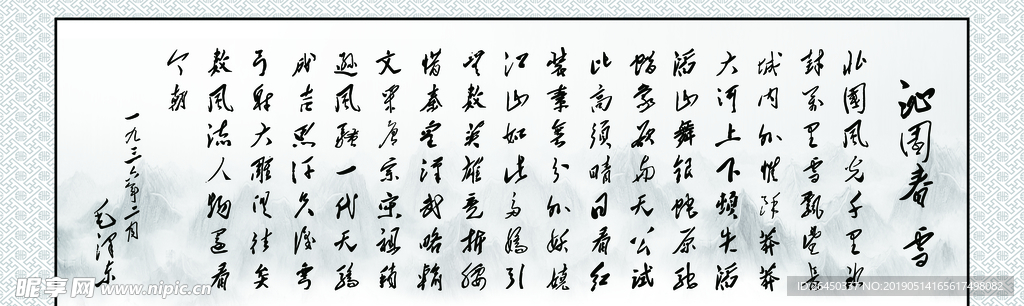 沁园春 雪
北国风光千里冰
封万里雪飘望长
城内外惟馀莽莽
大河上下顿失滔
滔山舞银蛇原驰
蜡象欲与天公试
比高须晴日看红
装素裹分外妖娆
江山如此多娇引
无数英雄竞折腰
惜秦皇汉武略输
文采唐宗宋祖稍
逊风骚一代天骄
成吉思汗只识弯
弓射大雕俱往矣
数风流人物还看
今朝
一九三六年二月
毛泽东
昵享网 www.nipic.cn
NO:20190514165617498082